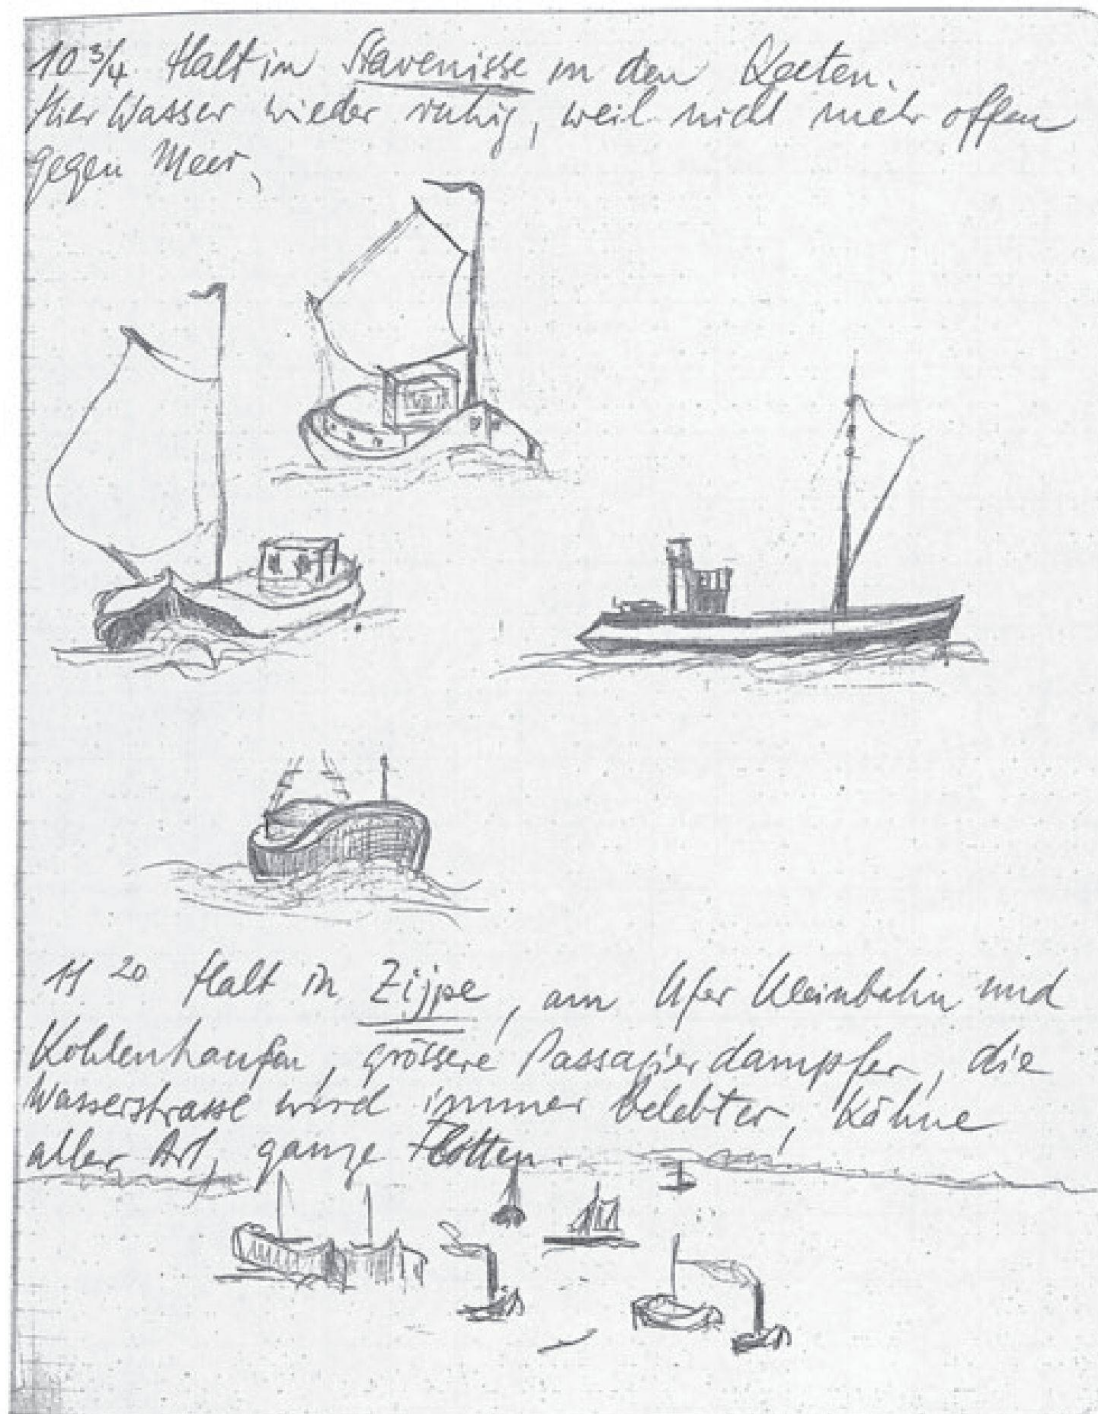 10 3/4 Halt in Stavenisse in den Keeten.
Hier Wasser wieder ruhig, weil nicht mehr offen
gegen Meer.
11 20 Halt in Zijpe, am Ufer Kleinbahn und
Kohlenhaufen, grössere Passagierdampfer, die
Wasserstrasse wird immer belebter, Kähne
aller Art, ganze Flotten.